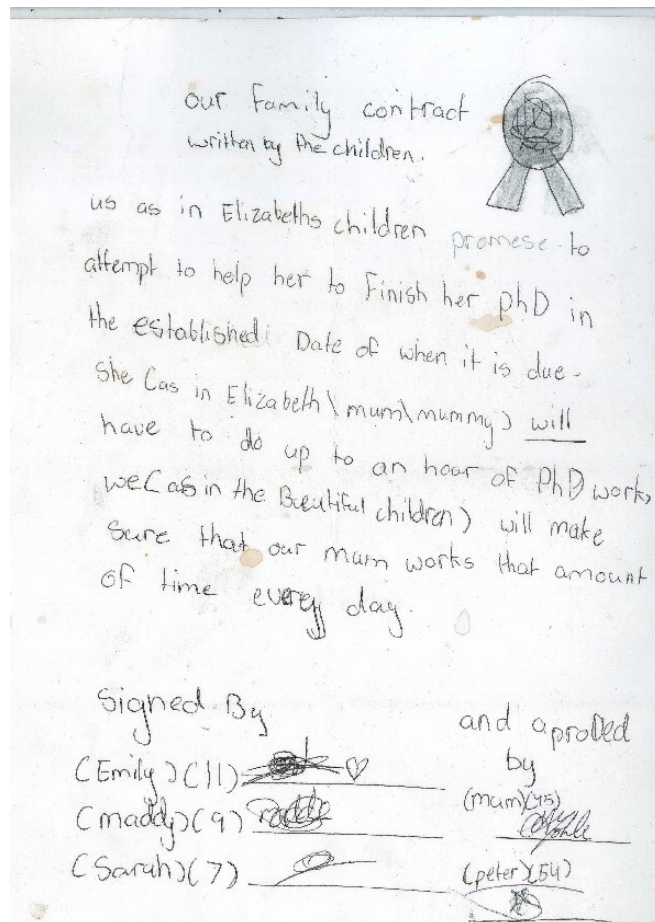 our family contract
written by the children.
us as in Elizabeths children promese to
attempt to help her to Finish her phD in
the established Date of when it is due.
She (as in Elizabeth \ mum\mummy) will
have to do up to an hour of PhD work,
we (as in the Beutiful children) will make
Sure that our mum works that amount
of time every day.
Signed By
and aproved
by
(Emily) (11)
(mum) (45)
(maddy) (9)
(Sarah) (7)
(peter) (54)